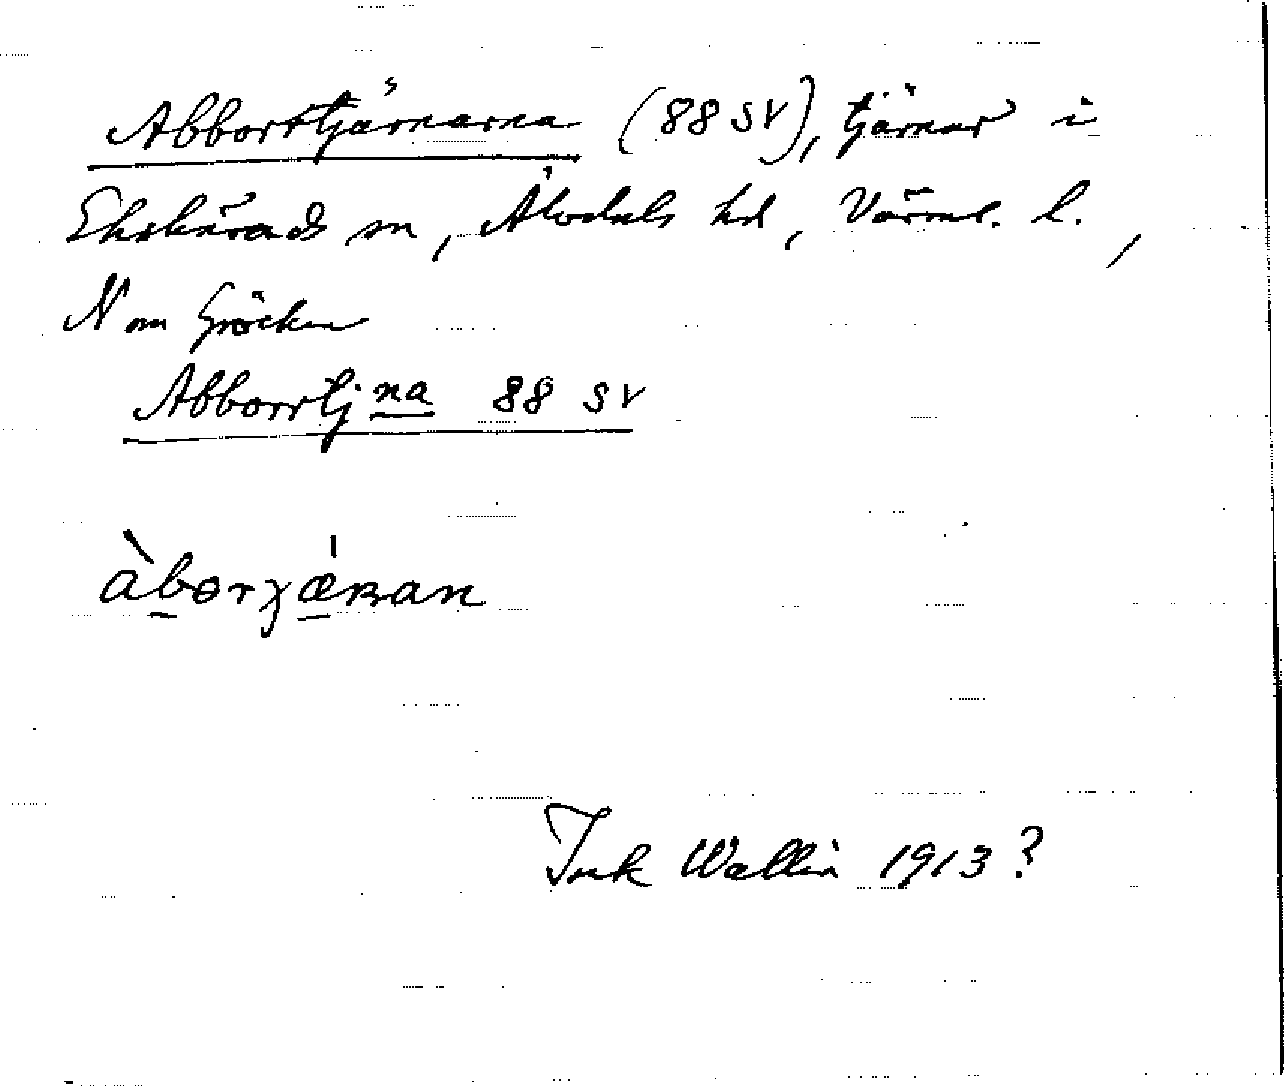 Abborrtjärnarna (88 SV), tjärnar i
Ekshärads sn, Älvdals hd, Värml. l.,
N om Gröcken
Abborrtj na 88 SV
àbɵrȷǽʀan
Ink Wallin 1913?